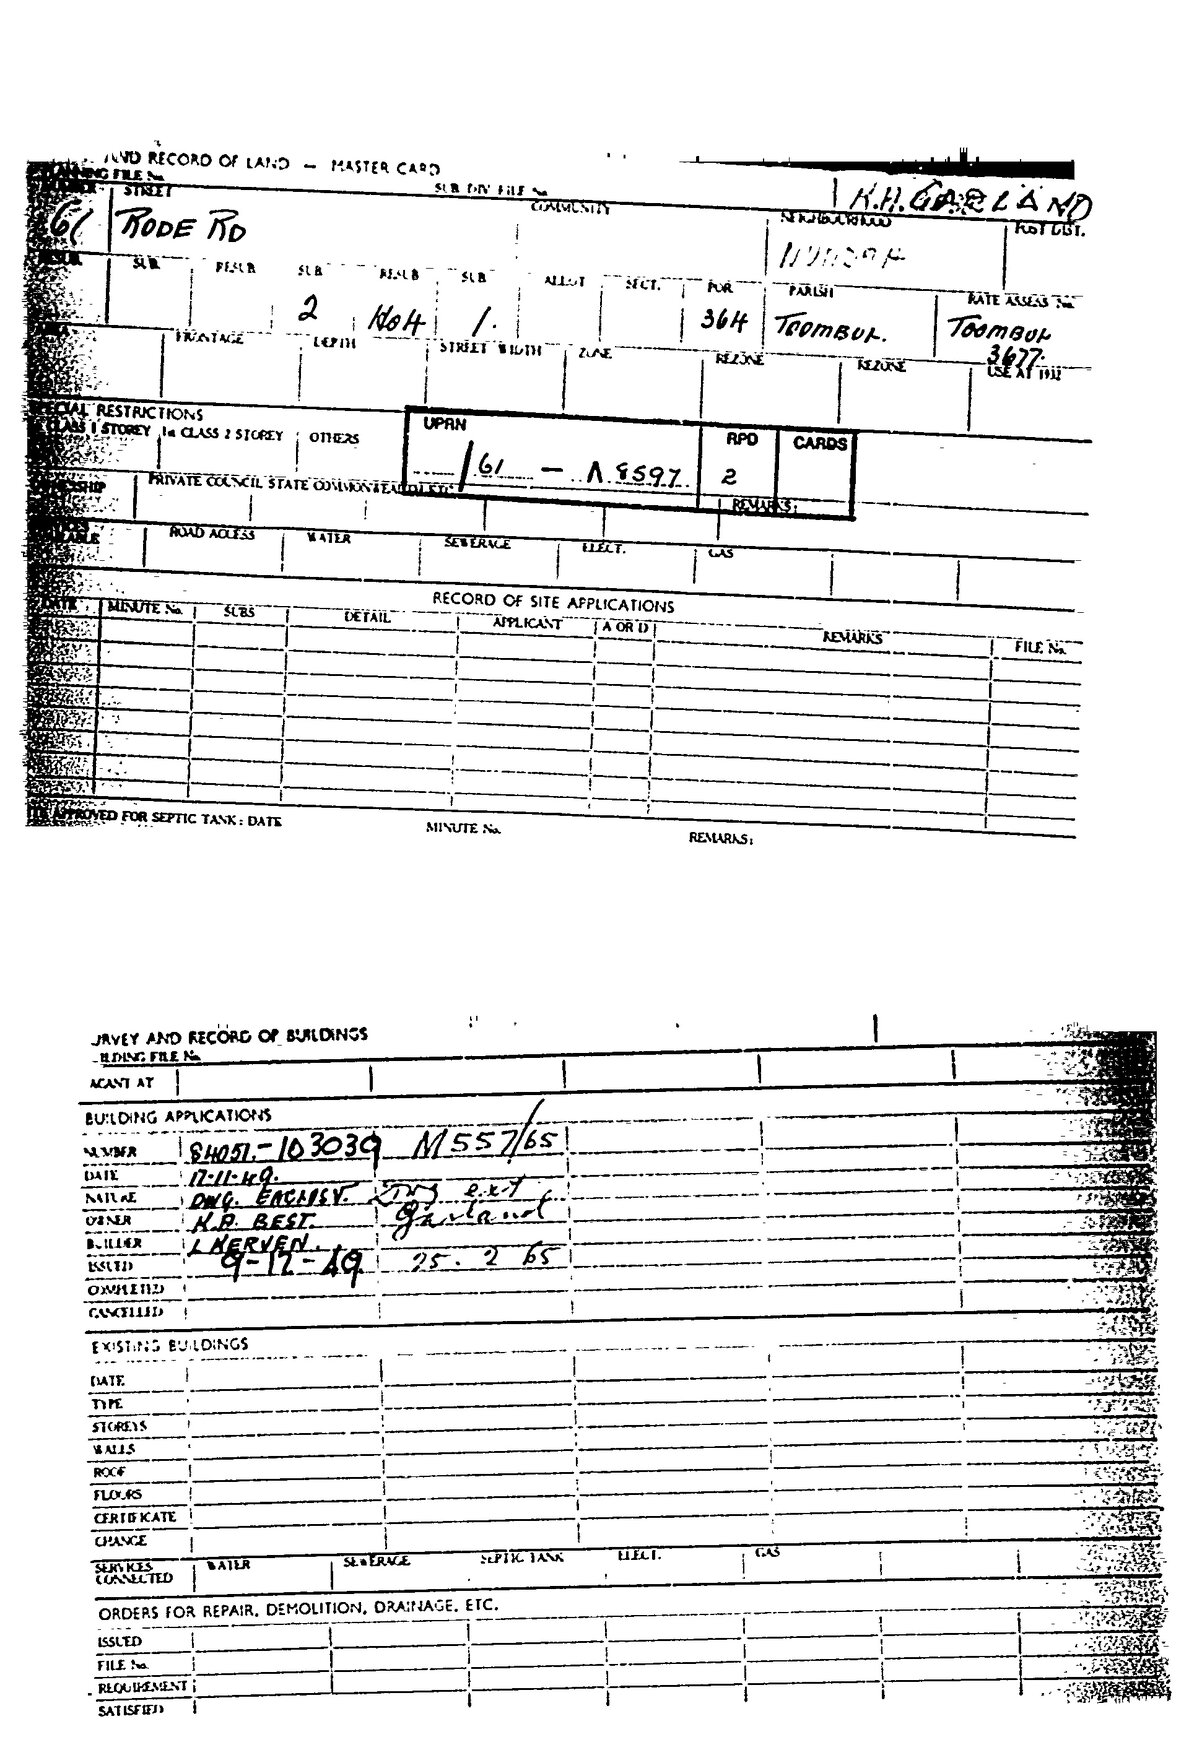 AND RECORD OF LAND — MASTER CARD
PLANNING FILE No. SUB DIV. FILE No. K.H. GARLAND
NUMBER STREET COMMUNITY NEIGHBOURHOOD POST DIST.
61 RODE RD NUNDAH
RESUB. SUB. RESUB SUB. RESUB SUB. ALLOT SECT. POR. PARISH RATE ASSESS No.
2 1. 364 TOOMBUL. TOOMBUL
3677.
AREA FRONTAGE DEPTH STREET WIDTH ZONE REZONE REZONE USE AT 1932
SPECIAL RESTRICTIONS
CLASS 1 STOREY 1st CLASS 2 STOREY OTHERS UPRN RPD CARDS
/61 — A 8597 2
OWNERSHIP PRIVATE COUNCIL STATE COMMONWEALTH REMARKS:
SERVICES AVAILABLE ROAD ACCESS WATER SEWERAGE ELECT. GAS
RECORD OF SITE APPLICATIONS
DATE MINUTE No. SUBS DETAIL APPLICANT A OR D REMARKS FILE No.
APPROVED FOR SEPTIC TANK: DATE MINUTE No. REMARKS:
URVEY AND RECORD OF BUILDINGS
ILDING FILE No.
ACANT AT
BUILDING APPLICATIONS
NUMBER 84051-103039 M557/65
DATE 17-11-49.
NATURE DWG. ext
OWNER K.A. BEST. Garland
BUILDER L KERVEN.
ISSUED 9-12-49 25. 2 65
COMPLETED
CANCELLED
EXISTING BUILDINGS
DATE
TYPE
STOREYS
WALLS
ROOF
FLOORS
CERTIFICATE
CHANGE
SERVICES CONNECTED WATER SEWERAGE SEPTIC TANK ELECT. GAS
ORDERS FOR REPAIR, DEMOLITION, DRAINAGE, ETC.
ISSUED
FILE No.
REQUIREMENT
SATISFIED